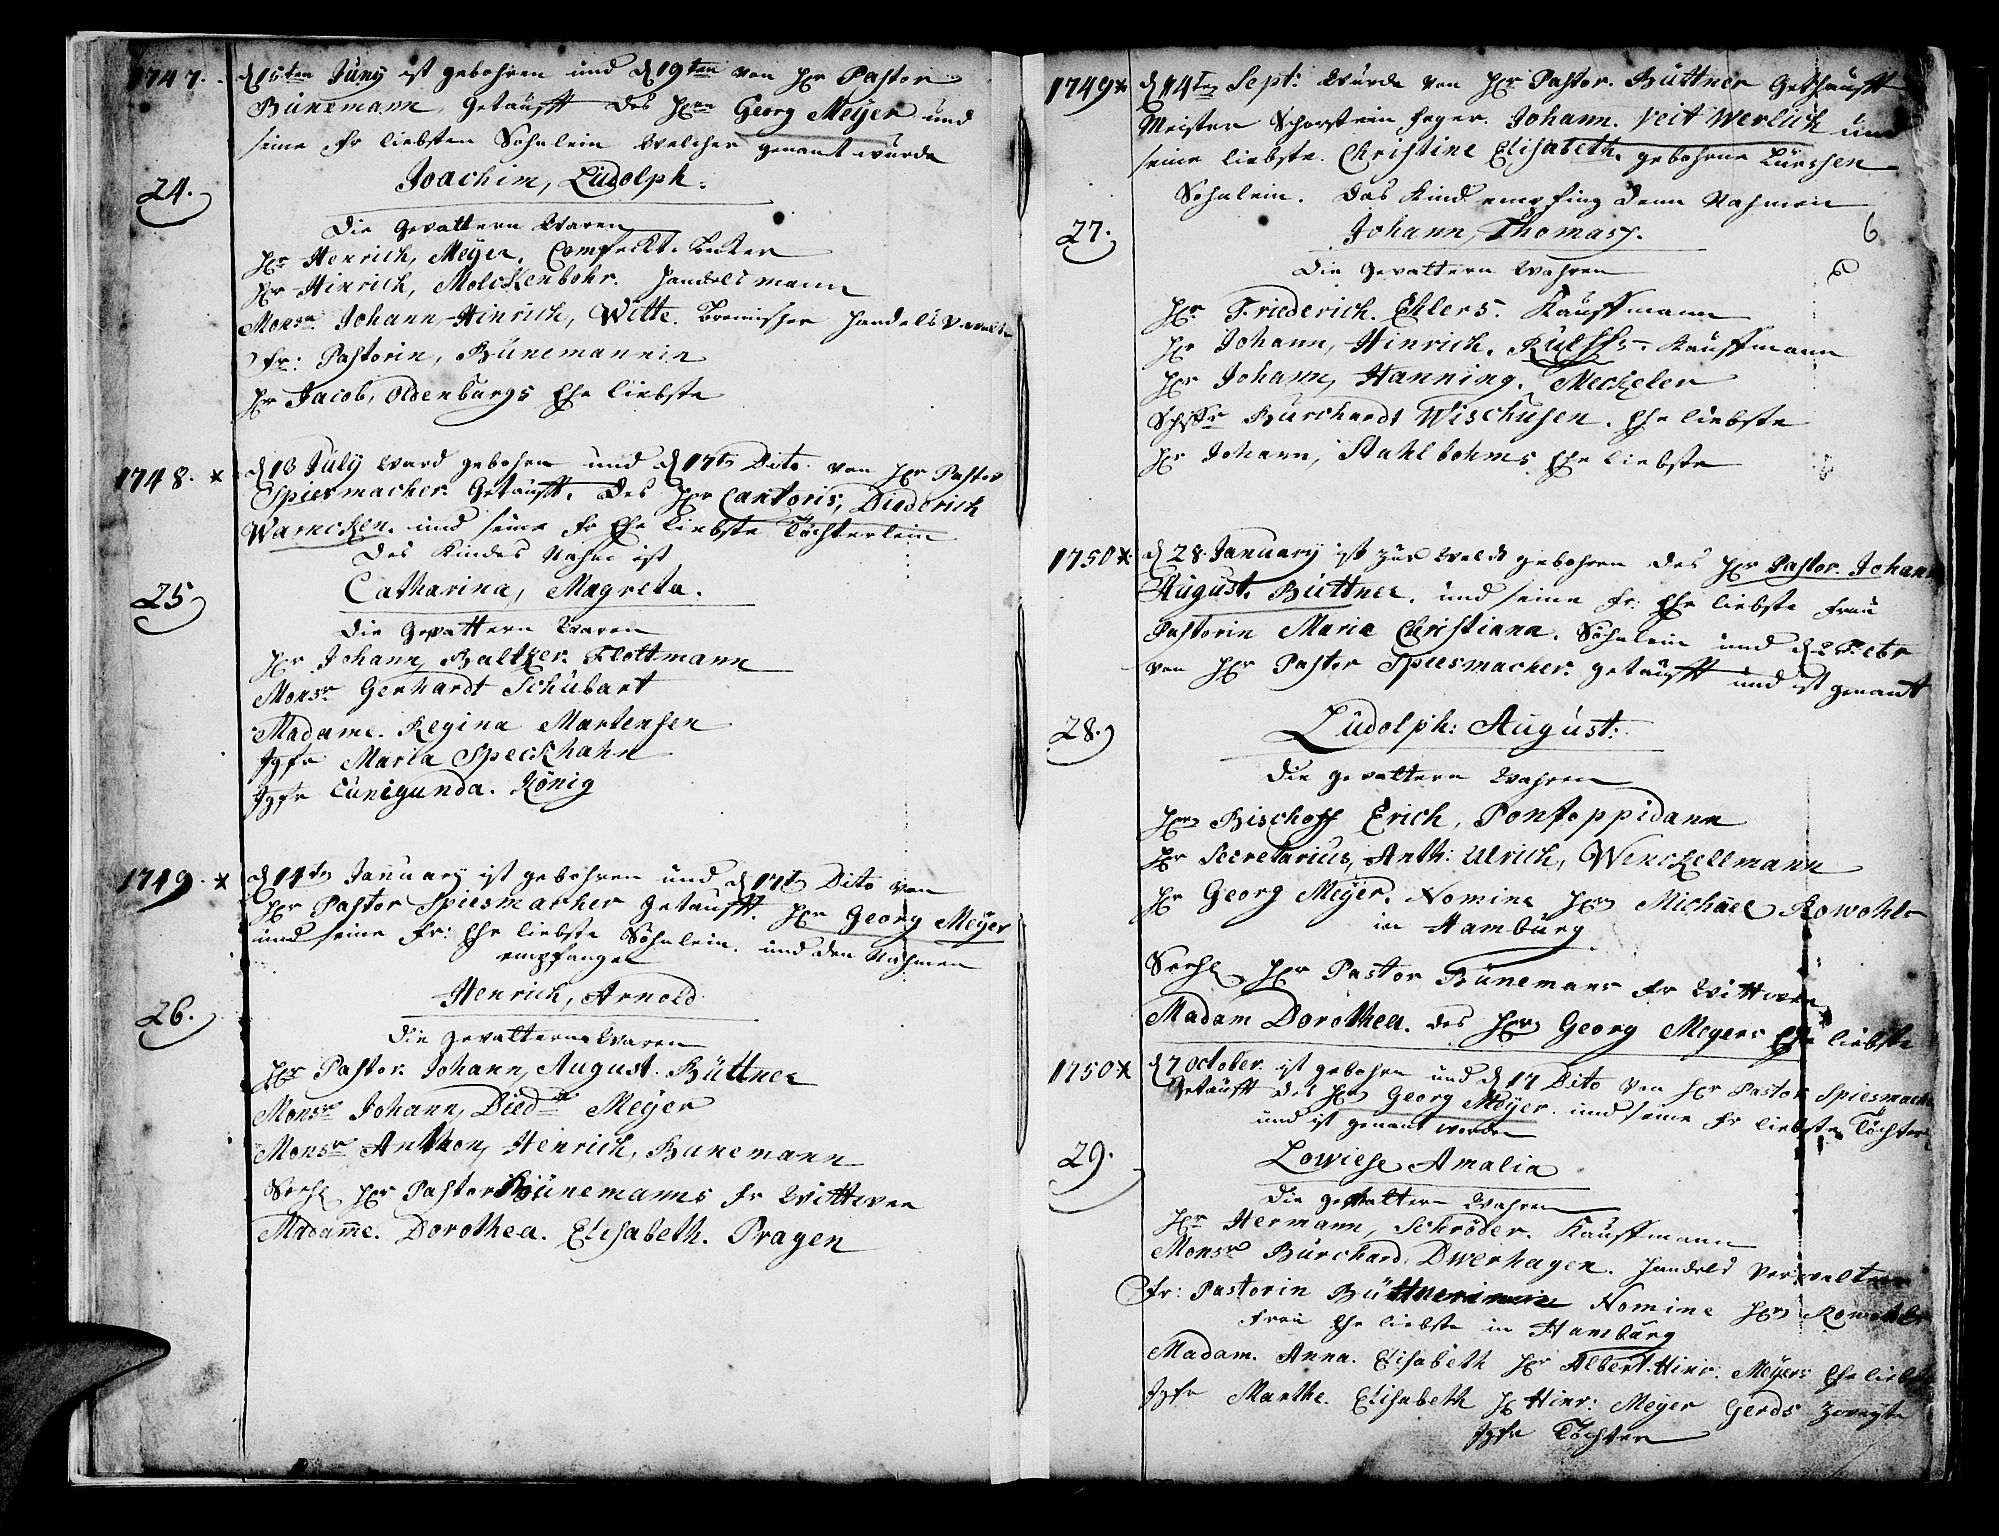 1747. d 15ten Juny ist gebohren und d 19ten von Hr Pastor
Bünemann, getaufft des Hrn Georg Meyer und
seine fr liebsten Söhnlein welcher genant wurde
Joachim, Ludolph.
24.
Die Gevattern waren
Hr Henrich, Meyer, Comfeckt. Becker
Hr Hinrich, Molckenbohr. Handelsmann
Monsr Johann, Hinrich, Witte. Bremischer Handels
Fr: Pastorin, Bünemannin
Hr Jacob, Oldenburgs Ehe liebste
1748. * d 13 July ward gebohren und d 17tn Dito von Hr Pastor
Spiesmacher. Getaufft. des Hrn Cantoris, Diederich
Warncken. und seine fr Ehe liebste Töchterlein
Des Kindes Nahme ist
Catharina, Magreta.
25
Die Gevattern waren
Hr Johann, Baltzer. Flottmann
Monsr Gerhardt Schubart
Madame. Regina Martensen
Jgfr Maria Speckhahn
Jgfr Cunigunda. König
1749. * d 14tn January ist gebohren und d 17tn Dito von
Hr Pastor Spiesmacher Getaufft. Hrn Georg Meyer
und seine fr: Ehe liebste Söhnlein. und den Nahmen
empfangen
Henrich, Arnold
26.
Die Gevattern waren
Hr Pastor Johann, August. Büttner
Monsr Johann, Died: Meyer
Monsr Anthon, Henrich, Bunemann
Seehl Hr Pastor Bünemanns fr Wittwen
Madame. Dorothea. Elisabeth. Pragen
1749 * d 14tn Sept: wurde von Hr Pastor. Büttner Gethaufft
Meister Schorstein feger. Johann. Veit Werlich und
seine liebste. Christine Elisabeth, gebohrne Lürssen
Söhnlein. Das Kind empfing denn Nahmen
Johann, Thomas.
6
27.
Die Gevattern wahren
Hr Friederich. Ehlers. Kauffmann
Hr Johann, Hinrich. Kauffmann
Hr Johann, Hanning. Meckeler
Schffr Burchardt Wischusen. Ehe liebste
Hr Johann, Stahlbohms Ehe liebste
1750 * d 28 January ist zur Weldt gebohren des Hr Pastor. Johann
August. Büttner. und seine fr: Ehe liebste frau
Pastorin Maria Christiana. Söhnlein und d 2 Febr
von Hr Pastor Spiesmacher. getaufft und ist genant
Ludolph: August:
28.
Die Gevattern wahren
Hrn Bischoff Erich, Pontoppidann
Hr Secretarius, Anth: Ulrich, Wenckellmann
Hr Georg Meyer. Nomine Hrn Michael Kowohl
in Hamburg
Seehl Hr Pastor Bünemans fr Wittwen
Madam Dorothea. des Hrn Georg Meyers Ehe liebste
1750 * d 7 October. ist gebohren und d 17 Dito von Hr Pastor Spiesmacher
Getaufft des Hrn Georg Meyer. und seine fr liebste Töchter
und ist genant worden
Lowiese Amalia
29.
Die gevattern wahren
Hr Hermann, Schröder. Kauffmann
Monsr Burchard, Dwerhagen. Handels Verwalter
Fr: Pastorin Büttnerinnin Nomine Hrn Kowohls
frau Ehe liebste in Hamburg
Madam. Anna. Elisabeth Hr Albert. Hinr: Meyers Ehe liebste
Jgfr Marthe. Elisabeth Hr Hinr: Meyer Gerds Zweyte
Jgfr Töchter